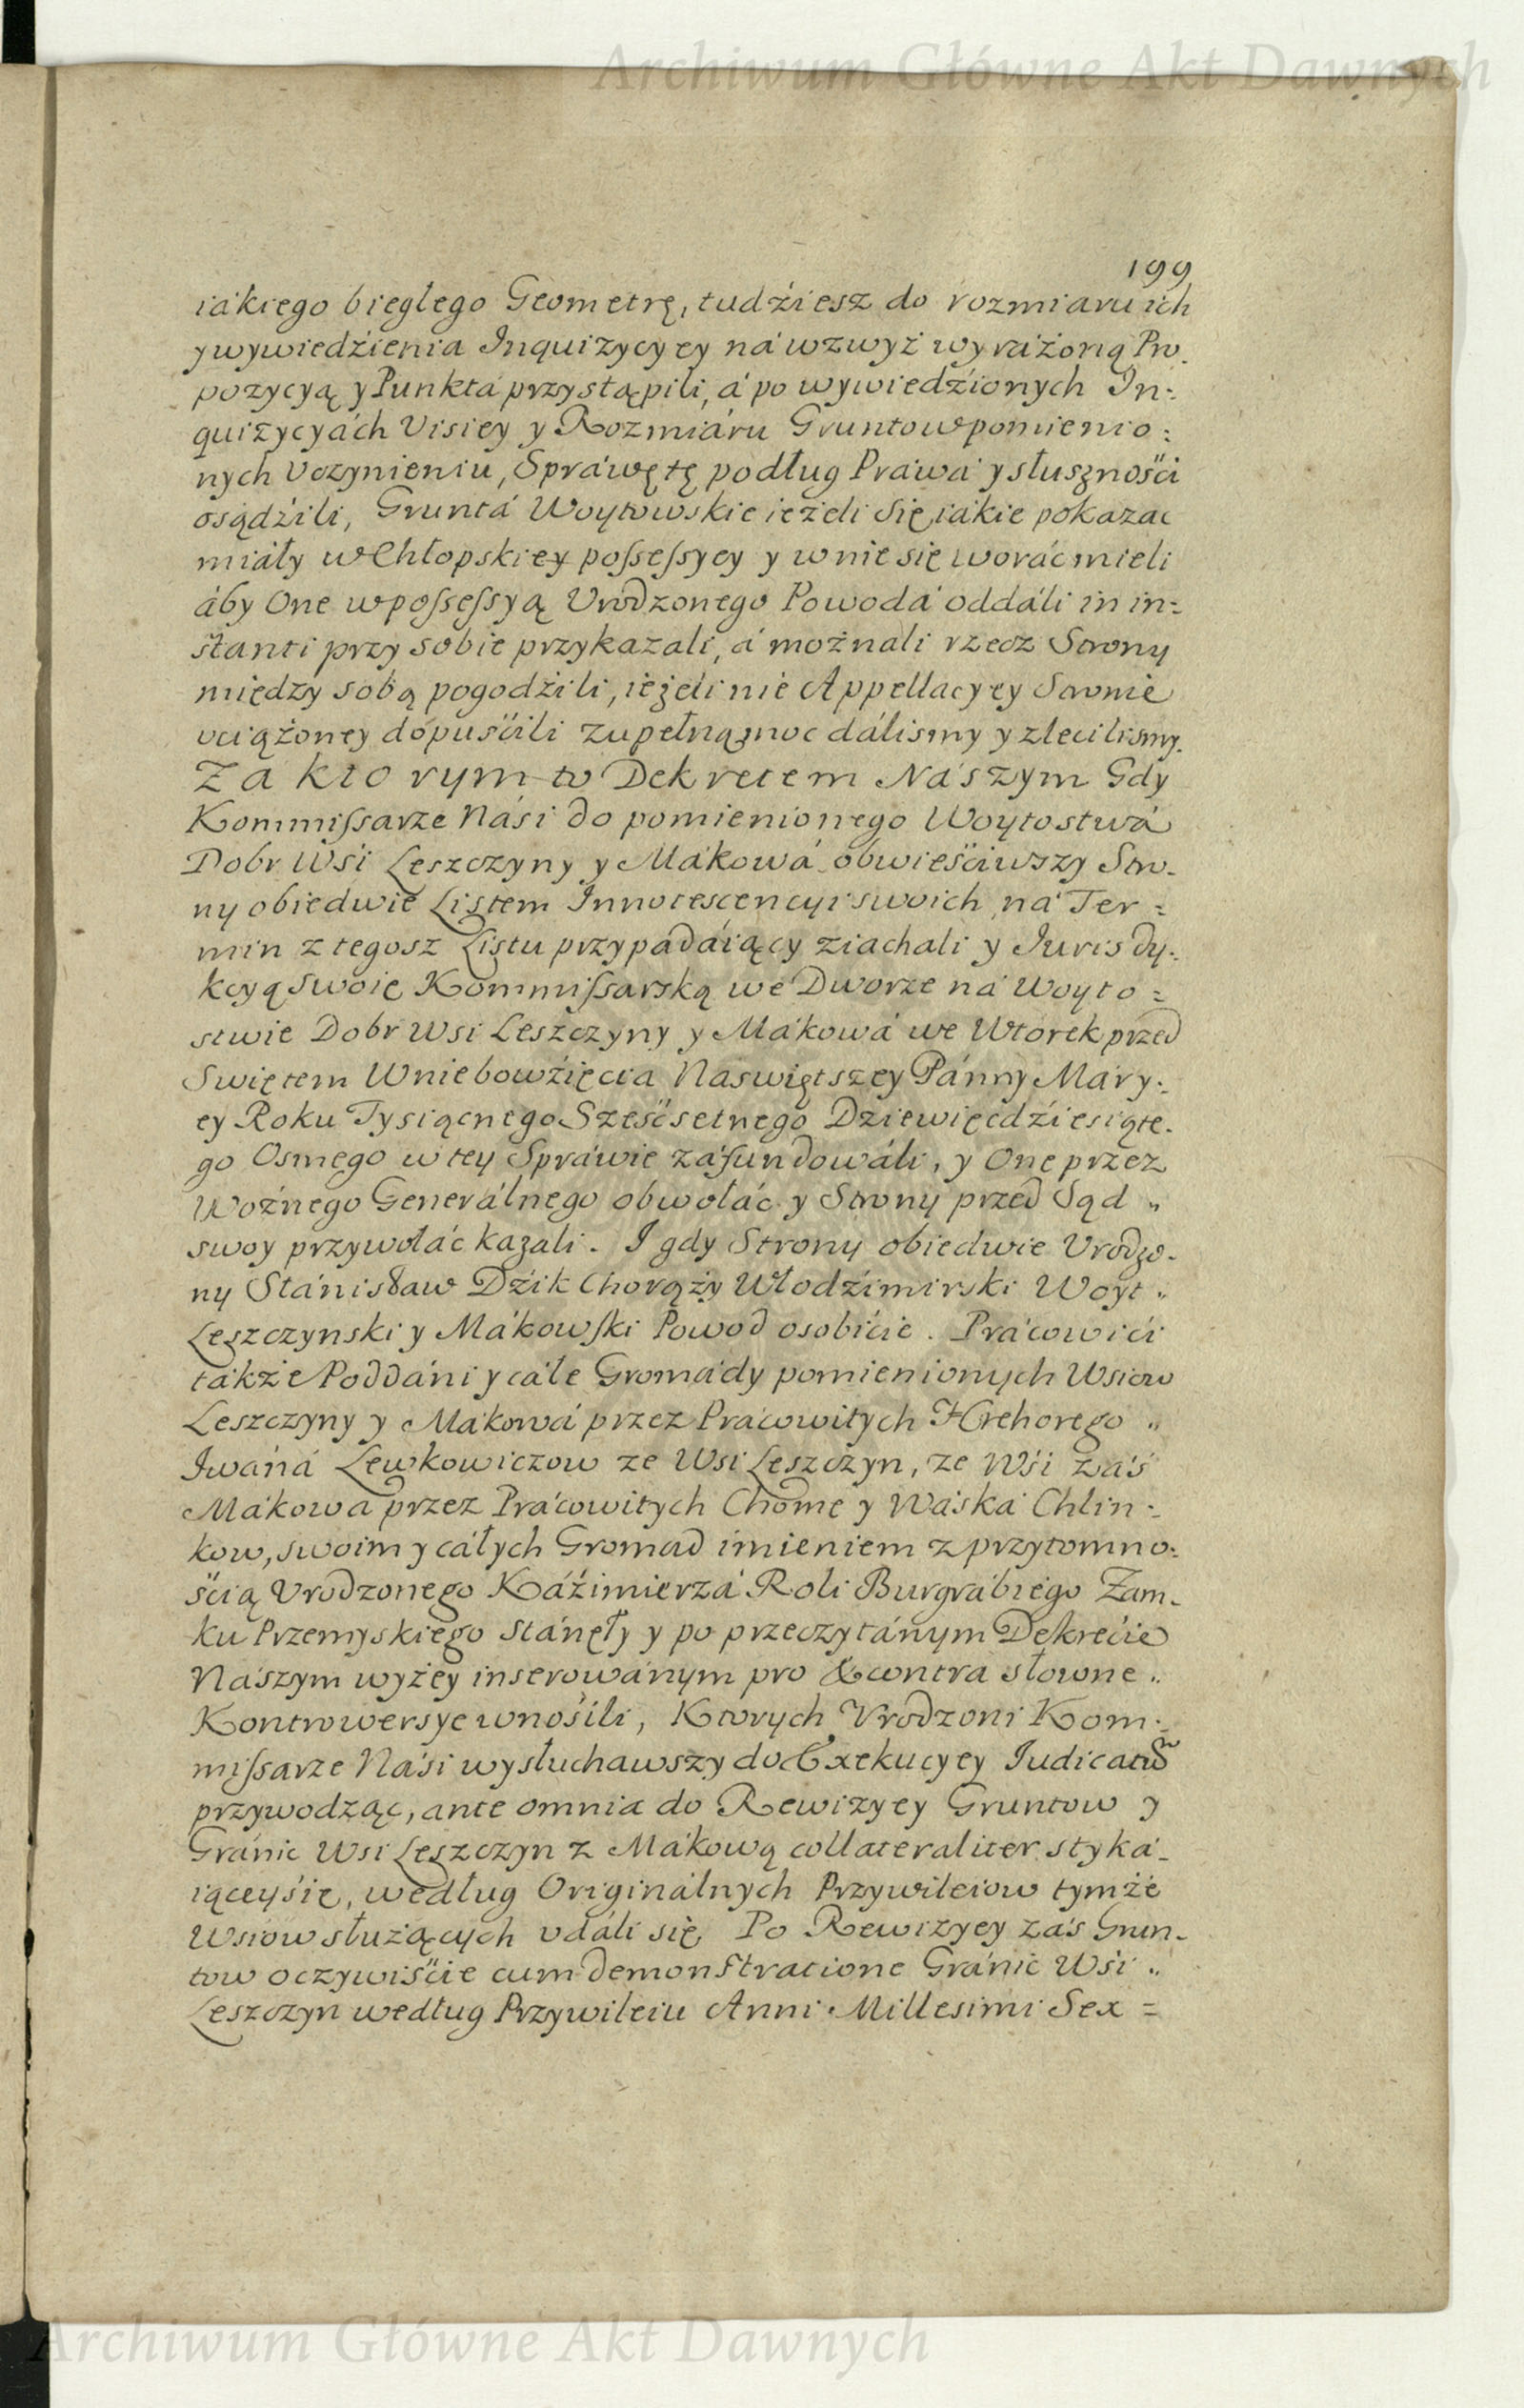 Archiwum Główne Akt Dawnych
199
iákiego biegłego Geometrę, tudźiesz do rozmiaru ich
y wywiedźienia Inquizycyey ná wzwyż wyráżoną Pro-
pozycyą y Punktá przystąpili, á po wywiedźionych In=
quizycyách Visiey y Rozmiáru Gruntow pomienio=
nych vczynieniu, Spráwę tę podług Práwá y słusznośći
osądźili, Gruntá Woytowskie ieżeli się iákie pokazac
miáły w Chłopskiey possessyey y w nie się worác mieli
áby One w possessyą Vrodzonego Powodá oddáli in in=
stanti przy sobie przykazali, á możnali rzecz Strony
między sobą pogodźili, ieżeli nie Appellacyey Stronie
vciążoney dopuśćili zupełną moc dálismy y zlecilismy.
Za ktorym to Dekretem Nászym Gdy
Kommissarze Náśi do pomienionego Woytostwá
Dobr Wśi Leszczyny y Mákowá obwieśćiwszy Stro-
ny obiedwie Listem Innotescencyi swoich ná Ter=
min z tegosz Listu przypadáiący ziachali y Jurisdy=
kcyą swoię Kommissarską we Dworze ná Woyto=
stwie Dobr Wsi Leszczyny y Mákowá we Wtorek przed
Swiętem Wniebowźięcia Naswiętszey Pánny Máry=
ey Roku Tysiącnego Sześćsetnego Dziewięćdźiesiąte-
go Osmego w tey Spráwie záfundowáli, y One przez
Woźnego Generálnego obwołáć y Strony przed Sąd
swoy przywołáć kazali. I gdy Strony obiedwie Vrodzo-
ny Stánisław Dźik Chorąży Włodźimirski Woyt
Leszczynski y Mákowski Powod osobićie. Prácowići
tákże Poddáni y cáłe Gromády pomienionych Wsiow
Leszczyny y Mákowá przez Prácowitych Hrehorego
Iwáná Lewkowiczow ze Wsi Leszczyn, ze Wśi záś
Mákowá przez Prácowitych Chomę y Wáská Chlin=
kow, swoim y cáłych Gromad imieniem z przytomno=
śćią Vrodzonego Káźimierzá Roli Burgrábiego Zam-
ku Przemyskiego stánęły y po przeczytánym Dekrećie
Nászym wyżey inserowánym pro & contra słowne
Kontrowersye wnośili, Ktorych Vrodzoni Kom=
missarze Náśi wysłuchawszy do Exekucyey Iudicatu
przywodząc, ante omnia do Rewizyey Gruntow y
Gránic Wsi Leszczyn z Mákową collateraliter styká-
iącey się, według Originálnych Przywileiow tymże
Wsiow służących vdáli się. Po Rewizyey záś Grun-
tow oczywiśćie cum demonstratione Gránic Wśi
Leszczyn według Przywileiu Anni Millesimi Sex=
Archiwum Główne Akt Dawnych